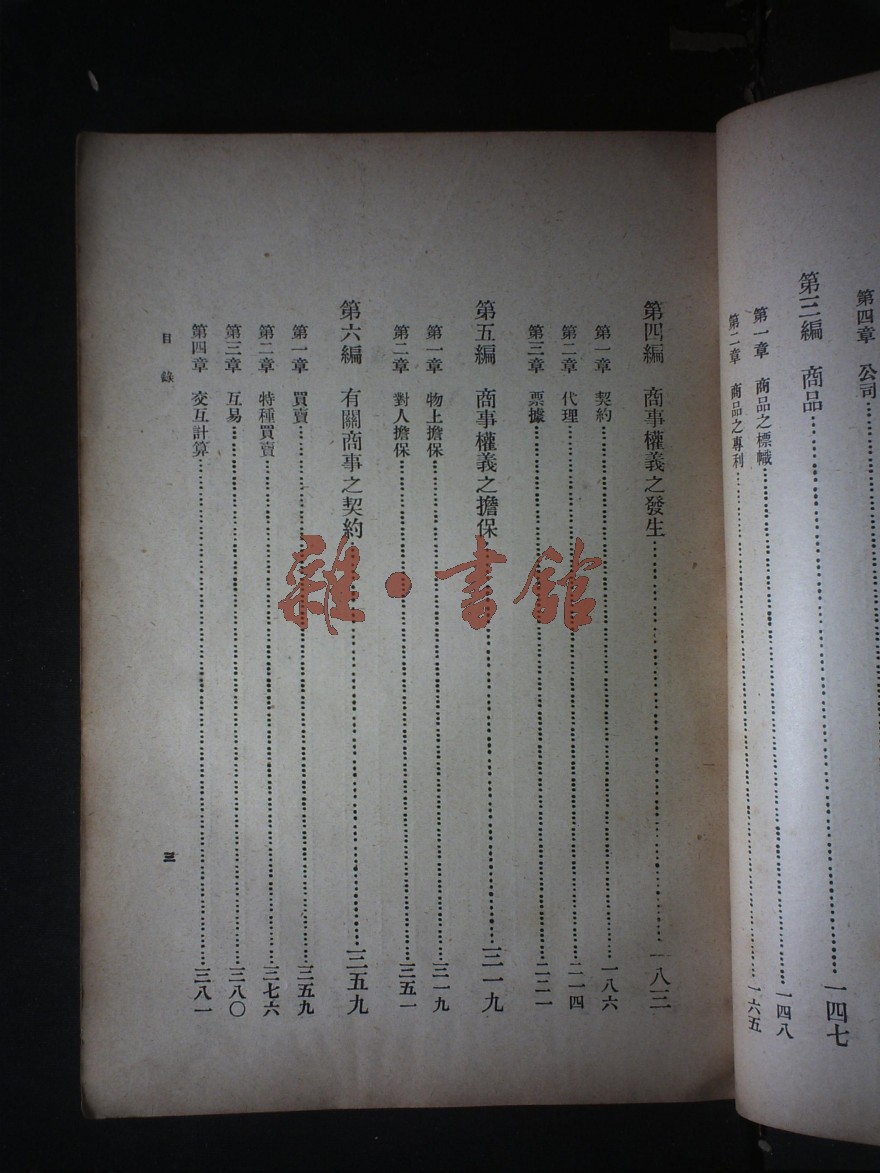 第四章 公司
第三編 商品 一四七
第一章 商品之標幟 一四八
第二章 商品之專利 一六五
第四編 商事權義之發生 一八三
第一章 契約 一八六
第二章 代理 二一四
第三章 票據 二二一
第五編 商事權義之擔保 三一九
第一章 物上擔保 三一九
第二章 對人擔保 三五一
第六編 有關商事之契約 三五九
第一章 買賣 三五九
第二章 特種買賣 三七六
第三章 互易 三八〇
第四章 交互計算 三八一
目錄 三
雜·書館